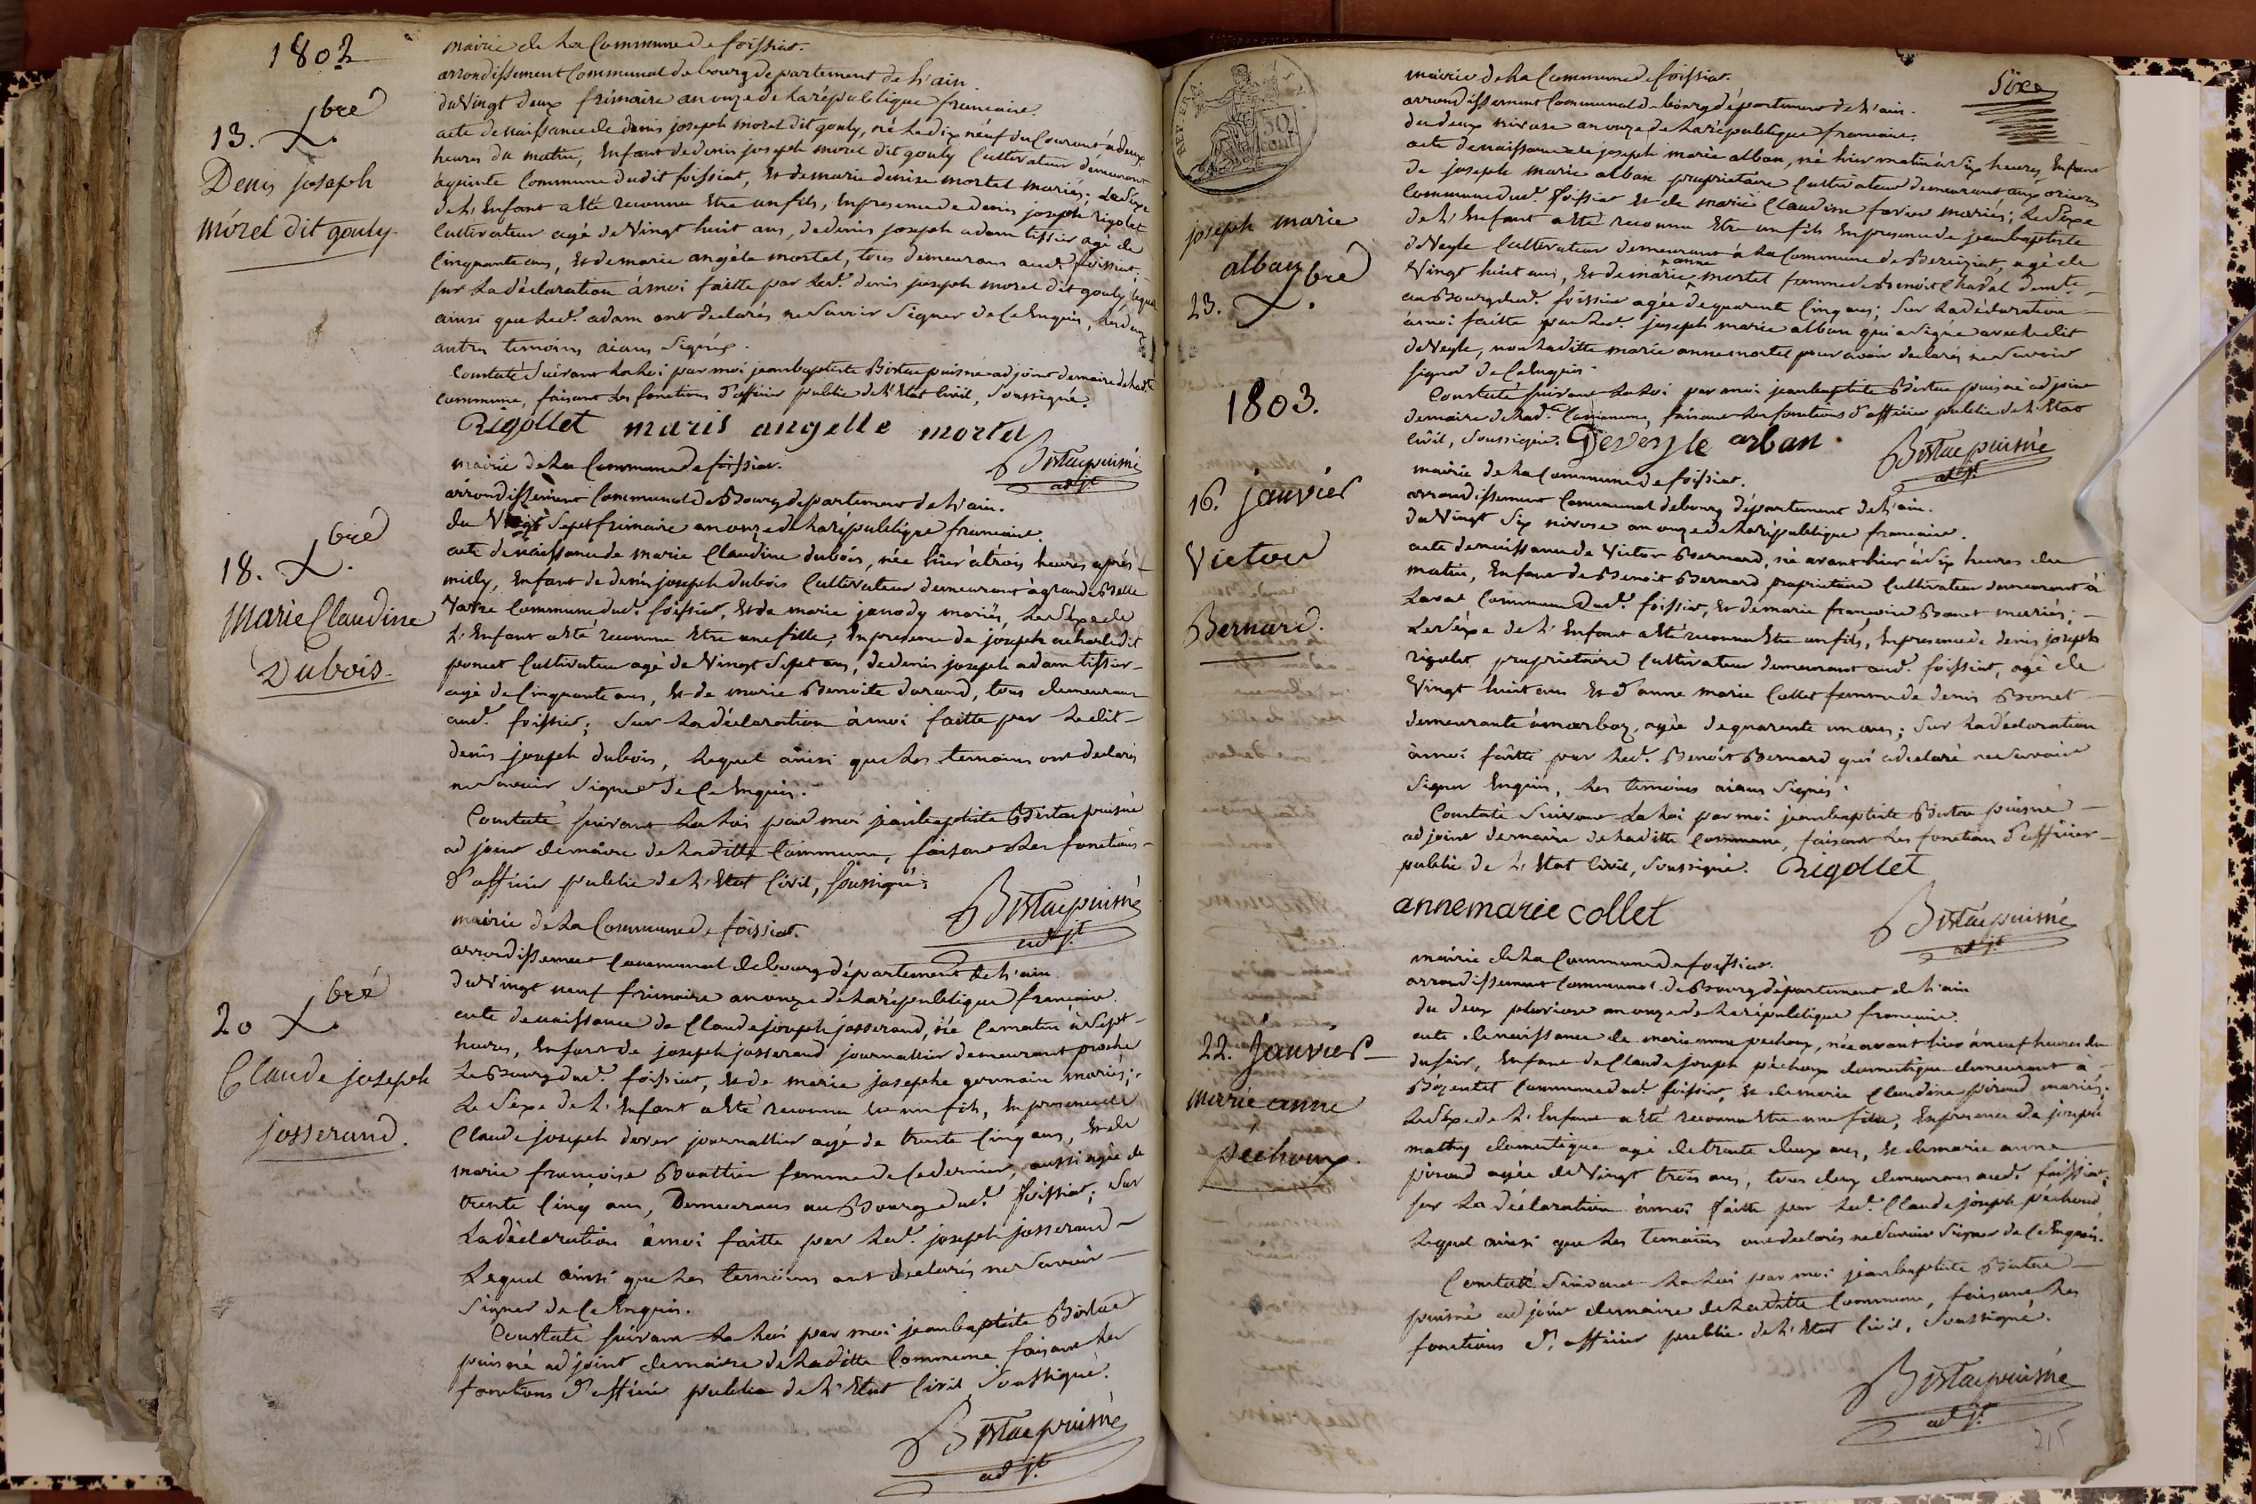 1802
mairie de La Commune de foissiat.
arrondissement Communal de bourg département de L'ain.
du Vingt deux frimaire an onze de La république francaise.
13. Xbre
Denis joseph
morel dit gouly
acte de naissance de denis joseph morel dit gouly, né Le dix neuf du Courant à deux
heures du matin, Enfant de denis joseph morel dit gouly Cultivateur demeurant
Commune dudit foissiat, Et de marie denise mortel mariés; Le Sexe
de L'Enfant a Eté reconnu Etre un fils, En presence de denis joseph rigolet
Cultivateur agé de Vingt huit ans, de denis joseph adam tissier agé de
Cinquante ans, Et de marie angéle mortel, tous demeurans aud. foissiat;
sur La déclaration à moi faitte par Led. denis joseph morel dit gouly, lequel
ainsi que Led. adam ont declarés ne Savoir Signer de Ce Enquis, Les deux
autres temoins aians Signés.
Constaté Suivant La Loi par moi jean baptiste Bistac puisné adjoint de maire de Ladte
Commune, faisant Les fonctions d'officier public de L'Etat Civil, Soussigné.
Rigollet marie angelle mortel
Bistac puisné
adjt.
mairie de La Commune de foissiat.
arrondissement Communal de Bourg departement de L'ain.
du Vingt Sept frimaire an onze de La république francaise.
18. Xbre
Marie Claudine
Dubois.
acte de naissance de marie Claudine dubois, née hier à trois heures après
midy, Enfant de denis joseph dubois Cultivateur demeurant à grand Belle
Vavre Commune dud. foissiat, Et de marie janody mariés, Le Sexe de
L'Enfant a Eté reconnu Etre une fille; En presence de joseph dit
poncet Cultivateur agé de Vingt Sept ans, de denis joseph adam tissier
agé de Cinquante ans, Et de marie Benoite durand, tous demeurans
aud. foissiat; Sur La déclaration à moi faitte par Ledit
denis joseph dubois, Lequel ainsi que Les temoins ont declarés
ne Savoir Signer de Ce Enquis.
Constaté suivant La Loi par moi jean baptiste Bistac puisné
adjoint de maire de Laditte Commune, faisant Les fonctions
d'officier public de L'Etat Civil, Soussigné.
Bistac puisné
adjt.
mairie de La Commune de foissiat.
arrondissement Communal de bourg département de L'ain.
du Vingt neuf frimaire an onze de La république francaise.
20 Xbre
Claude joseph
josserand.
acte de naissance de Claude joseph josserand, né Ce matin à Sept
heures, Enfant de joseph josserand journallier demeurant proche
Le Bourg dud. foissiat, Et de marie josephe germain mariés;
Le Sexe de L'Enfant a Eté reconnu Etre un fils, En presence de
Claude joseph dover journallier agé de trente Cinq ans, Et de
marie françoise Bouattier femme de Ce dernier, aussi agée de
trente Cinq ans, Demeurans au Bourg dud. foissiat; Sur
La déclaration à moi faitte par Led. joseph josserand
Lequel ainsi que Les temoins ont declarés ne Savoir
Signer de Ce Enquis.
Constaté suivant La Loi par moi jean baptiste Bistac
puisné adjoint de maire de Laditte Commune faisant Les
fonctions d'officier public de L'Etat Civil Soussigné.
Bistac puisné
adjt.
50
cent
mairie de La Commune de foissiat.
arrondissement Communal de bourg département de L'ain.
du deux nivose an onze de La république francaise.
joseph marie
alban
23. Xbre
acte de naissance de joseph marie alban, né hier matin à Six heures, Enfant
de joseph marie alban proprietaire Cultivateur demeurant aux
Commune dud. foissiat Et de marie Claudine mariés; Le Sexe
de L'Enfant a Eté reconnu Etre un fils En presence de jean baptiste
deVeyle Cultivateur demeurant à La Commune de Bereiziat, agé de
Vingt huit ans, Et de marie anne mortel femme de Benoit Chadal demte
au Bourg dud. foissiat agée de quarente Cinq ans; Sur La déclaration
à moi faitte par Led. joseph marie alban qui a Signé avec Ledit
deVeyle, non Laditte marie anne mortel pour avoir declaré ne Savoir
Signer de Ce Enquis.
Constaté suivant La Loi par moi jean baptiste Bistac puisné adjoint
de maire de Lad. Commune, faisant Les fonctions d'officier public de L'Etat
Civil, Soussigné. Deveyle arban
Bistac puisné
adjt.
1803.
mairie de La Commune de foissiat.
arrondissement Communal de bourg département de L'ain.
du Vingt Six nivose an onze de La république francaise.
16. janvier
Victor
Bernard.
acte de naissance de Victor Bernard, né avant hier à Six heures du
matin, Enfant de Benoit Bernard proprietaire Cultivateur demeurant à
Laval Commune dud. foissiat, Et de marie françoise Bonet mariés;
Le Sexe de L'Enfant a Eté reconnu Etre un fils, En presence de denis joseph
rigolet proprietaire Cultivateur demeurant aud. foissiat, agé de
Vingt huit ans Et d'anne marie Collet femme de denis Bonet
demeurante à marboz, agée de quarente un ans; Sur La déclaration
à moi faitte par Led. Benoit Bernard qui a declaré ne Savoir
Signer Enquis, Les temoins aians Signés.
Constaté Suivant La Loi par moi jean baptiste Bistac puisné
adjoint de maire de Laditte Commune, faisant Les fonctions d'officier
public de L'Etat Civil, Soussigné. Rigollet
annemarie collet
Bistac puisné
adjt.
mairie de La Commune de foissiat.
arrondissement Communal de Bourg département de L'ain
du deux pluviose an onze de La république francaise.
22. janvier
marie anne
péchoux.
acte de naissance de marie anne pechoux, née avant hier à neuf heures du
du soir, Enfant de Claude joseph péchoux domestique demeurant à
Bézentet Commune dud. foissiat, Et de marie Claudine piroud mariés;
Le Sexe de L'Enfant a Eté reconnu Etre une fille, En presence de joseph
mathy domestique agé de trente deux ans, Et de marie anne
piroud agée de Vingt trois ans, tous deux demeurans aud. foissiat;
sur La déclaration à moi faitte par Led. Claude joseph péchoux
Lequel ainsi que Les temoins ont declarés ne Savoir Signer de Ce Enquis.
Constaté Suivant La Loi par moi jean baptiste Bistac
puisné adjoint de maire de Laditte Commune, faisant Les
fonctions d'officier public de L'Etat Civil, Soussigné.
Bistac puisné
adjt.
215